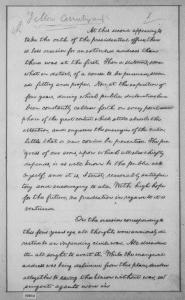 Fellow Countrymen:
At this second appearing to
take the oath of the presidential office, there
is less occasion for an extended address than
there was at the first. Then a statement, some
what in detail, of a course to be pursued, seemed
fitting and proper. Now, at the expiration of
four years, during which public declarations have
been constantly called forth on every point and
phase of the great contest which still absorbs the
attention, and engrosses the energies of the nation,
little that is new could be presented. The pro-
gress of our arms, upon which all else chiefly
depends, is as well known to the public as to
myself; and it is, I trust, reasonably satisfac-
tory and encouraging to all. With high hope
for the future, no prediction in regard to it is
ventured.
On the occasion corresponding to
this four years ago, all thoughts were anxiously di-
rected to an impending civil war. All dreaded
it—all sought to avert it. While the inaugural
address was being delivered from this place, devoted
altogether to saving the Union without war, in-
surgent agents were in